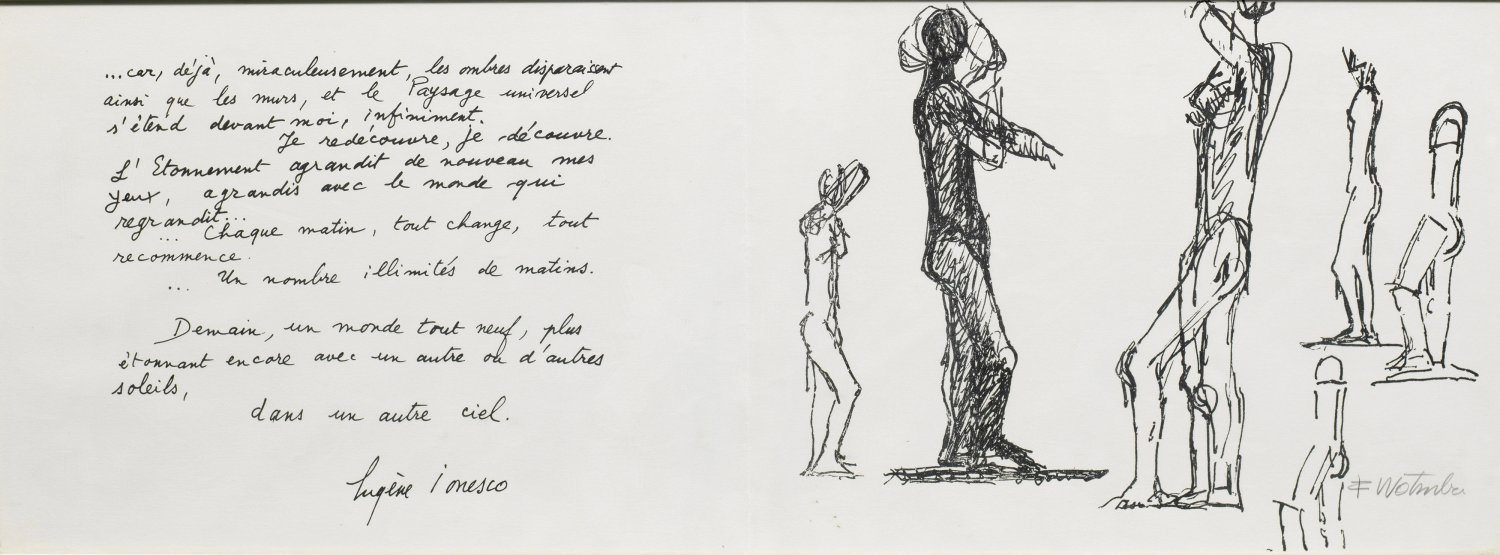 ...car, déjà, miraculeusement, les ombres disparaissent
ainsi que les murs, et le Paysage universel
s'étend devant moi, infiniment.
Je redécouvre, je découvre.
L'Etonnement agrandit de nouveau mes
yeux, agrandis avec le monde qui
regrandit...
... Chaque matin, tout change, tout
recommence.
... Un nombre illimités de matins.
Demain, un monde tout neuf, plus
étonnant encore avec un autre ou d'autres
soleils,
dans un autre ciel.
Eugène Ionesco
F Wotruba